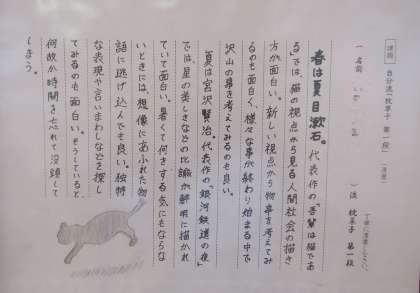 課題 自分流「枕草子 第一段」(清書)
丁寧に清書しなさい。
(名前 )流 枕草子 第一段
春は夏目漱石。代表作の「吾輩は猫であ
る」では、猫の視点から見る人間社会の描き
方が面白い。新しい視点から物事を考えてみ
るのも面白く、様々な事が終わり始まる中で
沢山の事を考えてみるのも良い。
夏は宮沢賢治。代表作の「銀河鉄道の夜」
では、星の美しさなどの比喩が鮮明に描かれ
ていて面白い。暑くて何をする気にもならな
いときには、想像にあふれた物
語に逃げ込んでも良い。独特
な表現や言いまわしなどを探し
てみるのも面白い。そうしていると
何故か時間を忘れて没頭して
しまう。